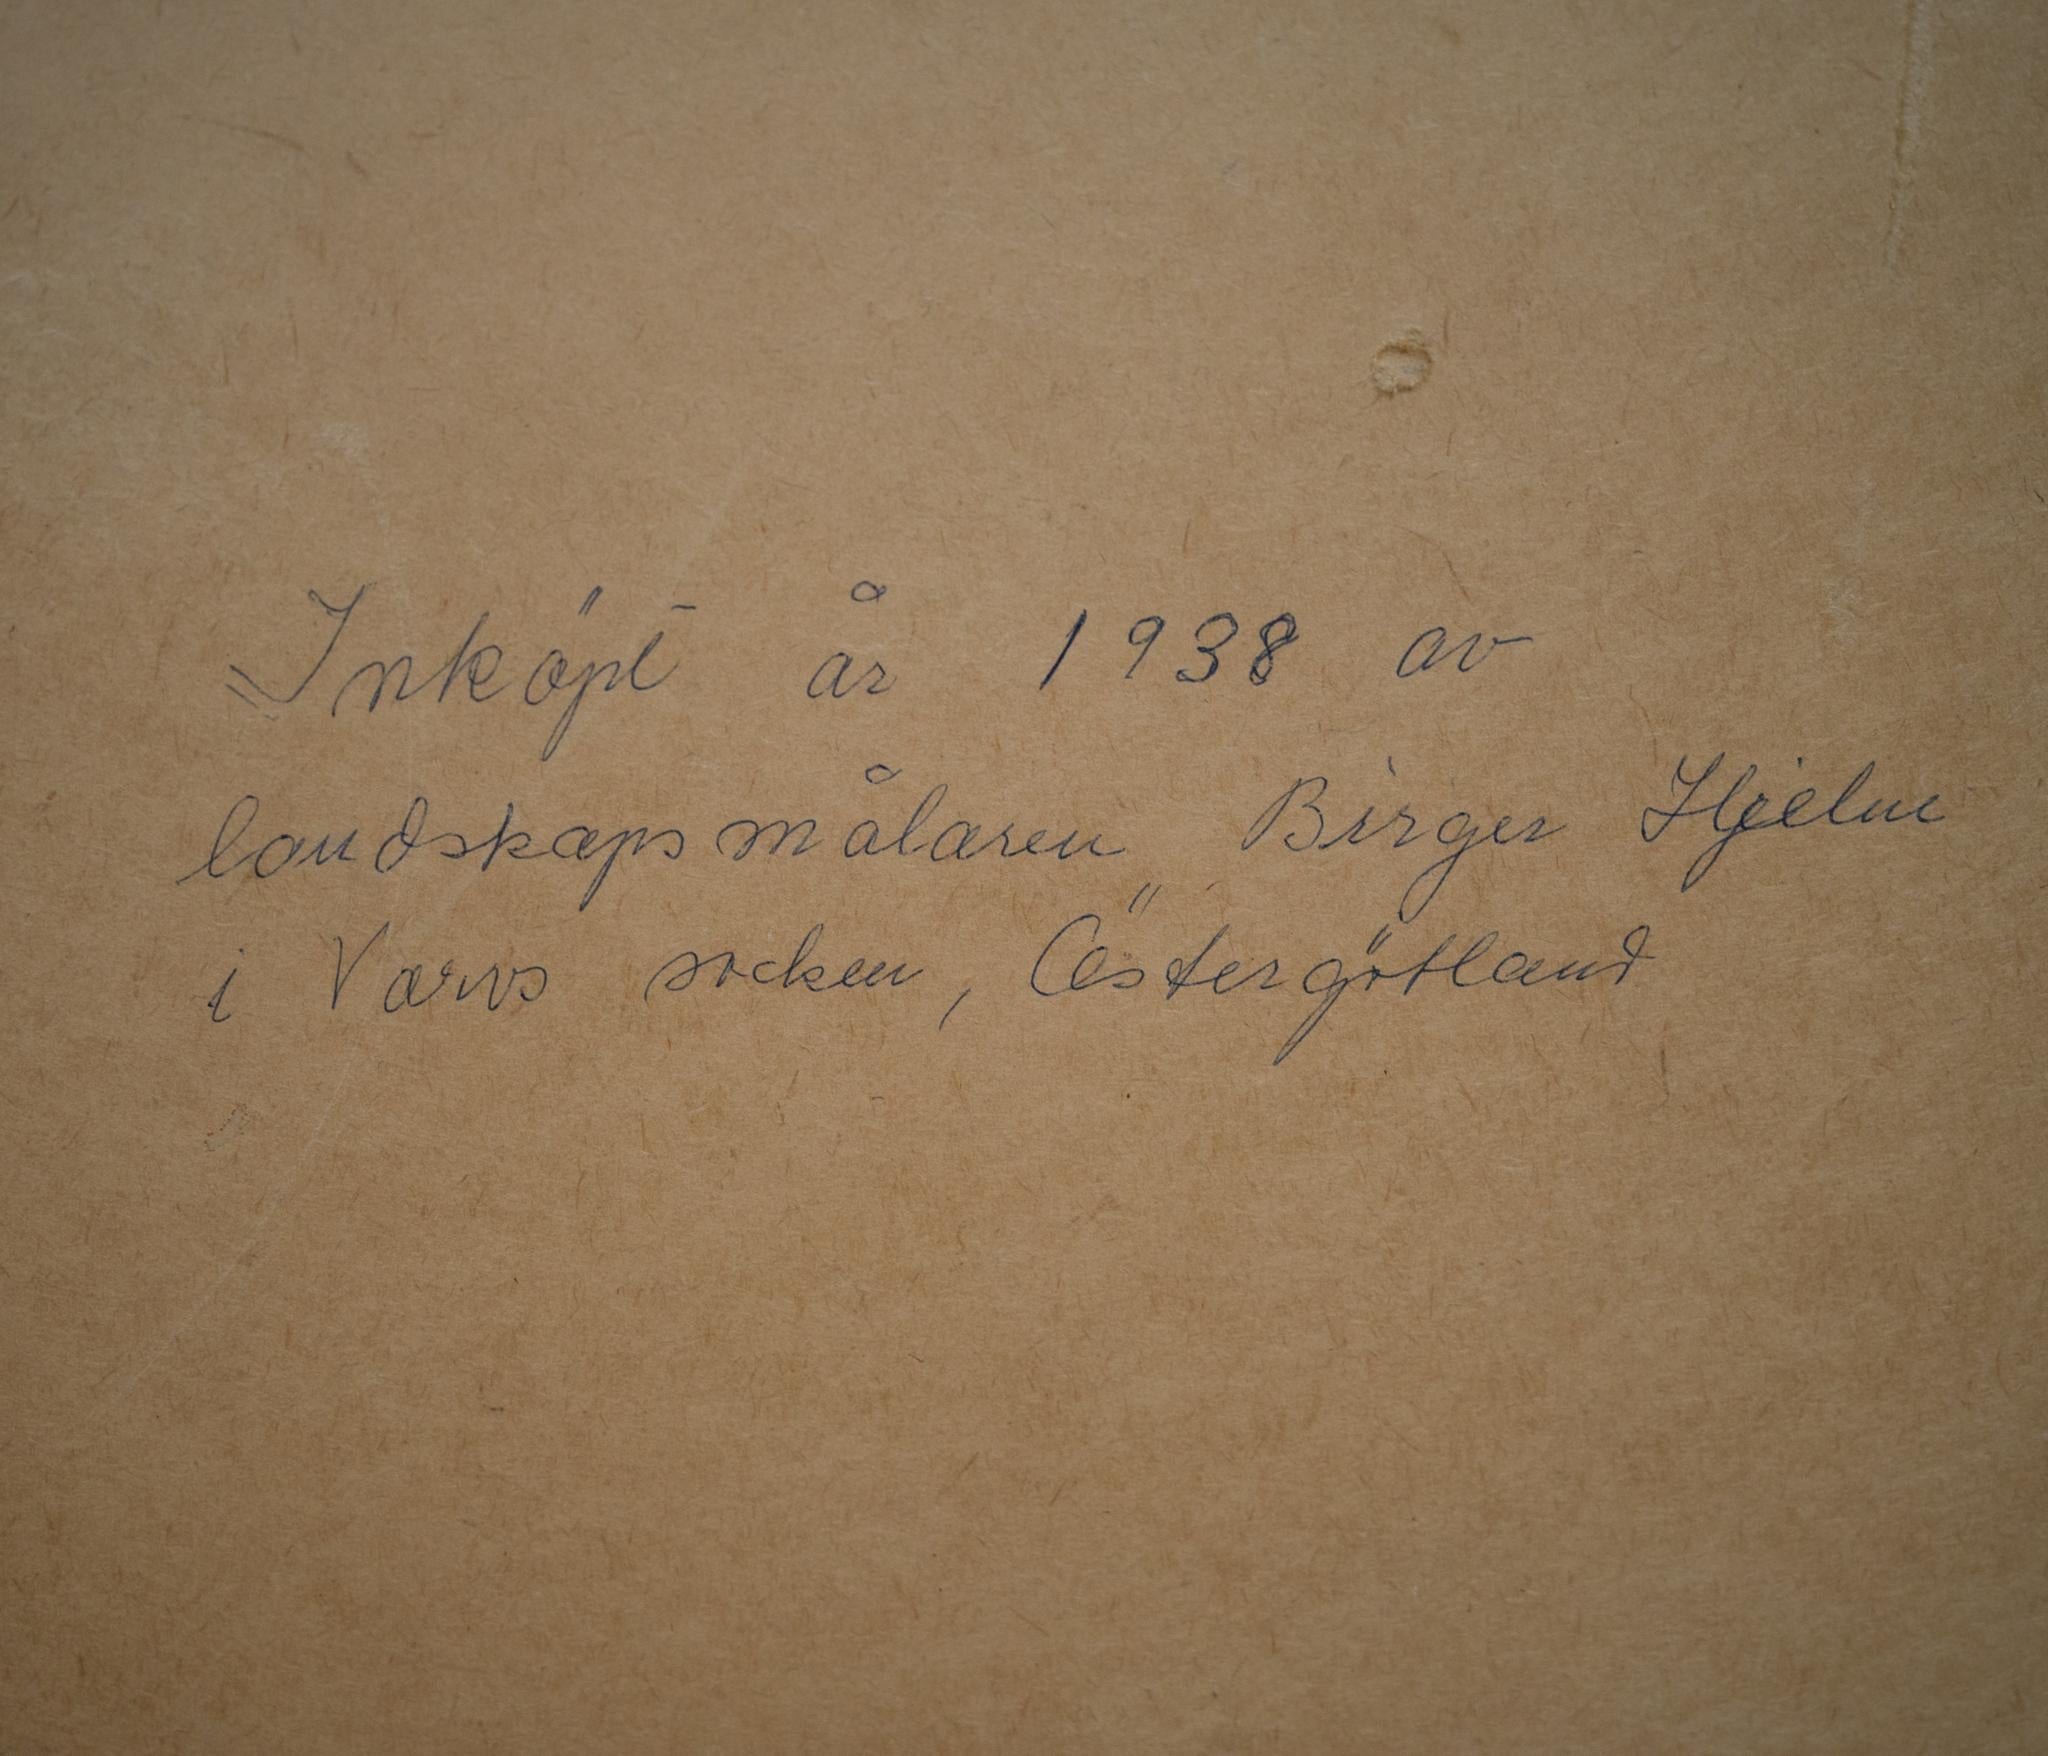 Inköpt år 1938 av
landskapsmålaren Birger Hjelm
i Varvs socken, Östergötland